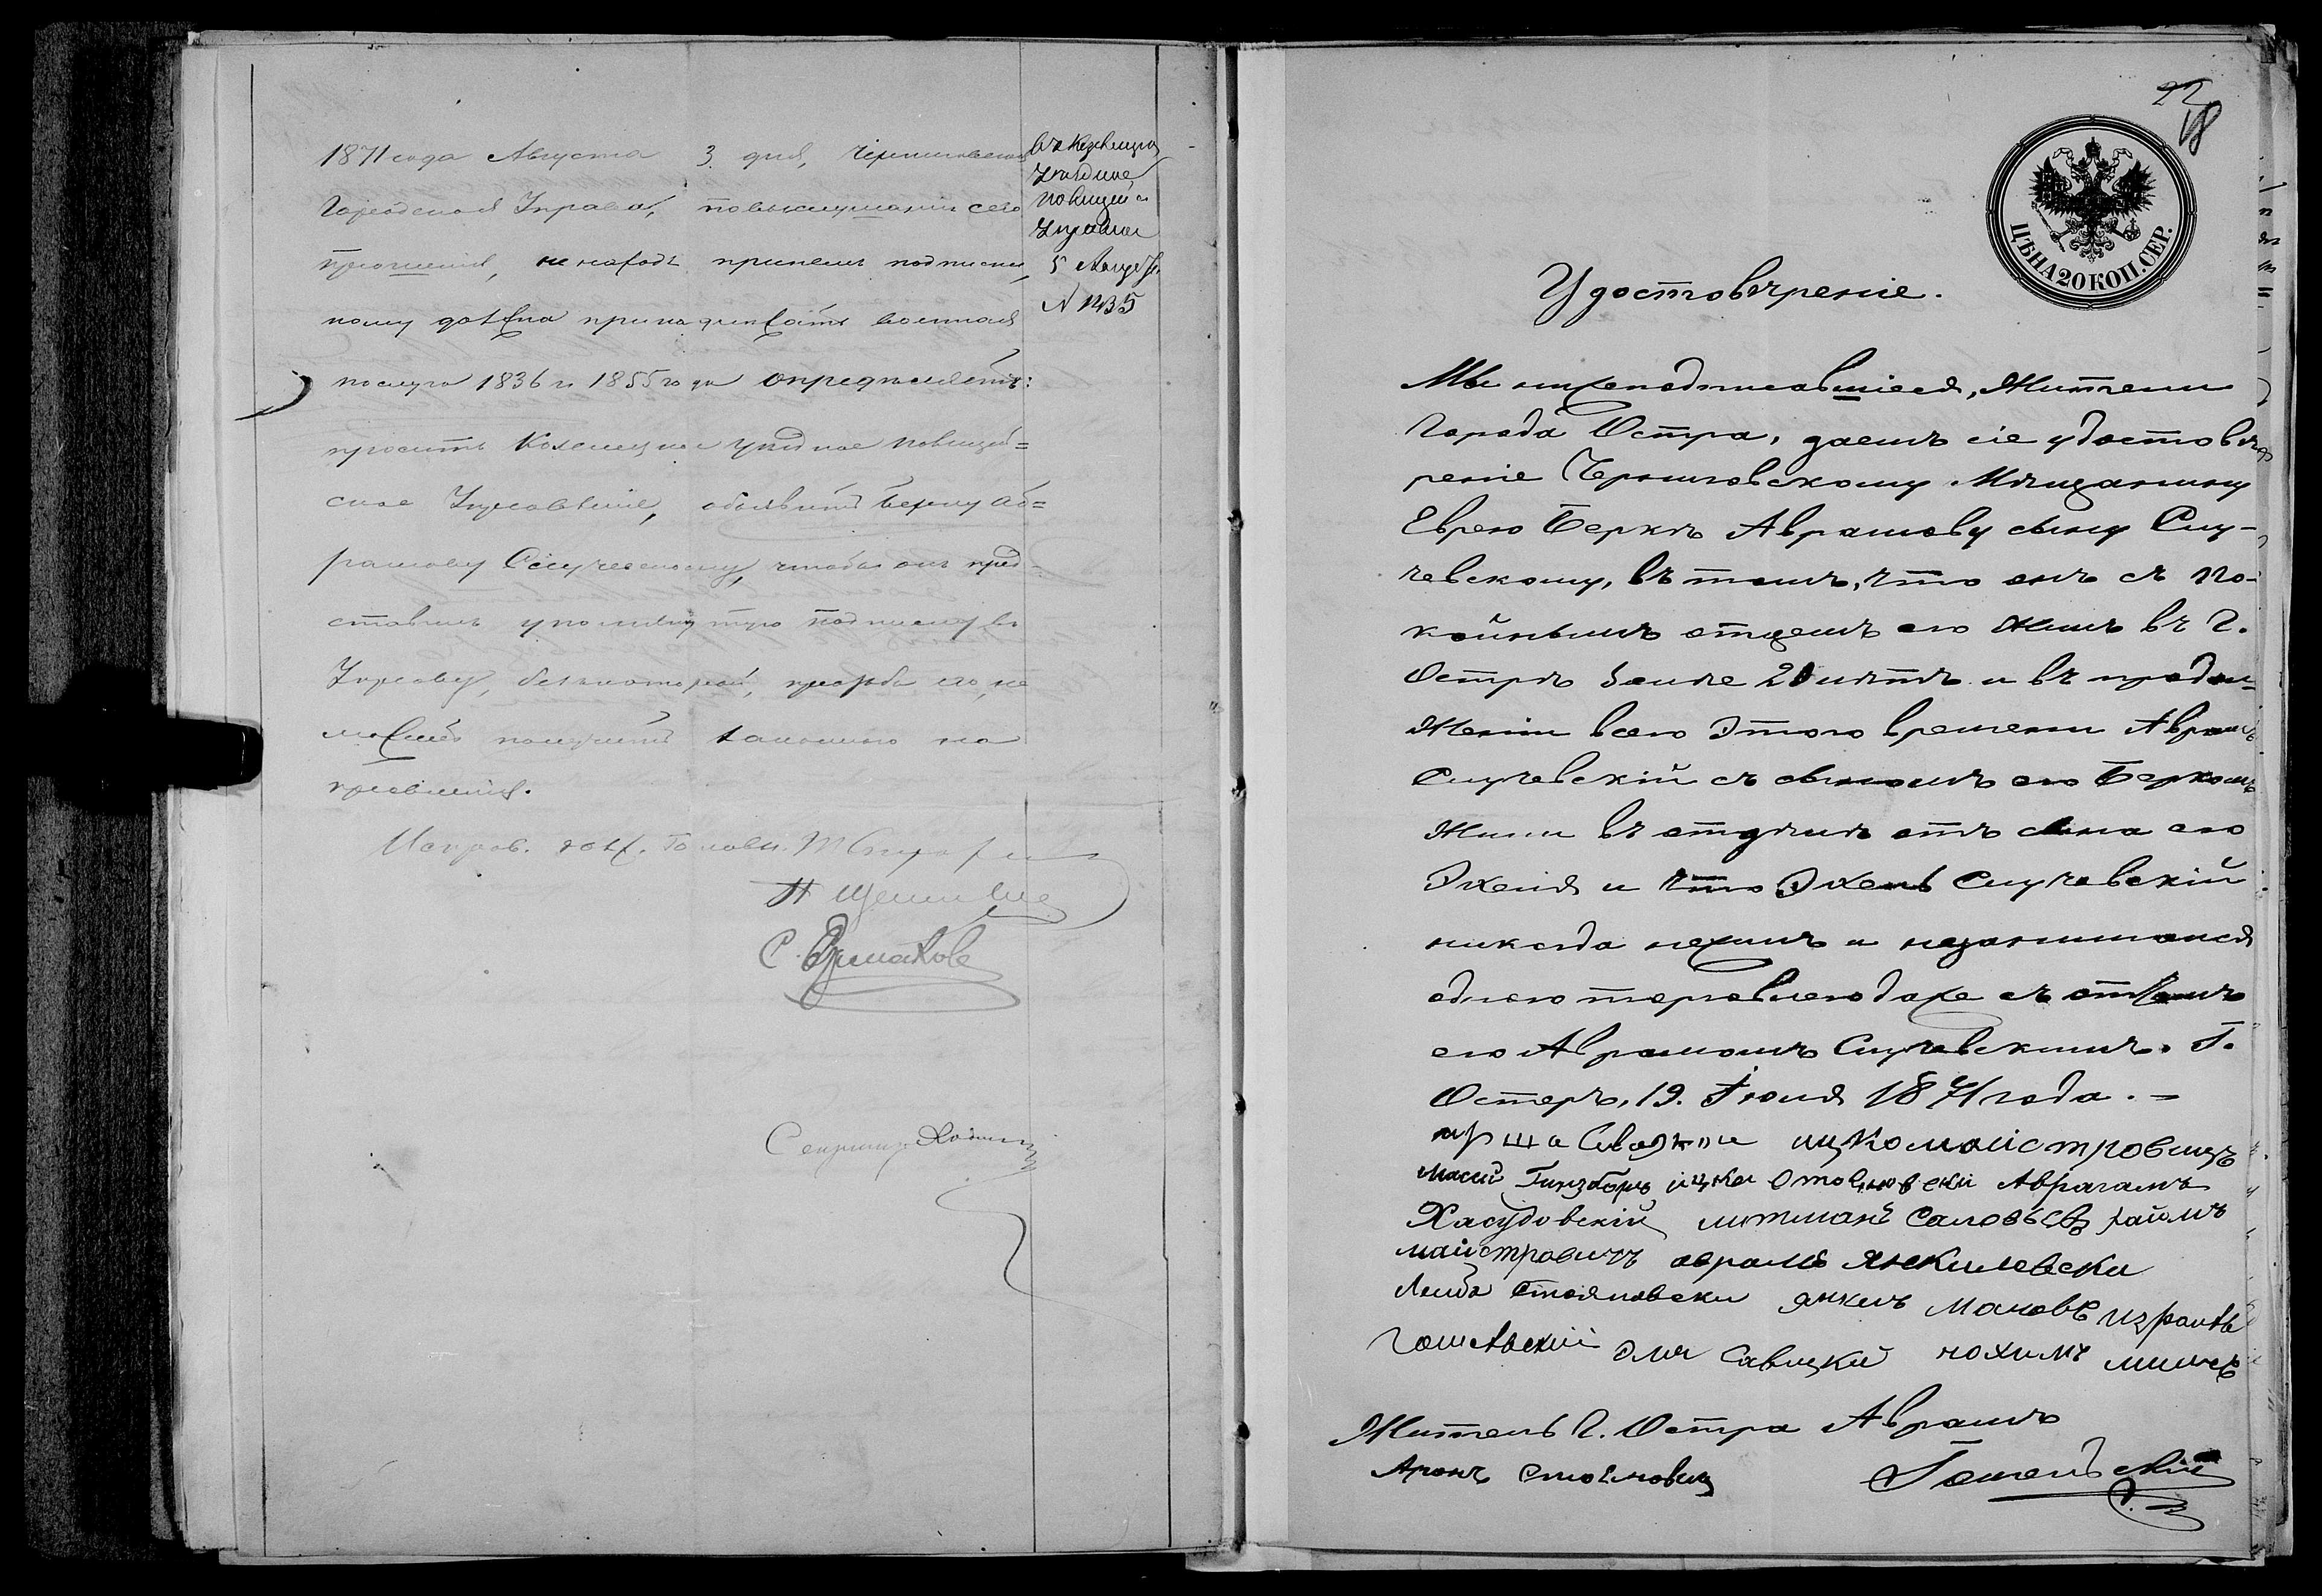 1871 года Августа 3 дня, Черниговская
Городская Управа, по выслушании сего
прошения, не находя при нем подписки,
кому должна принадлежать
послуга 1836 и 1855 года определяетъ:
просить Козелецкое уѣздное Полицей=
ское Управленіе, объявить Берку Аб=
рамову Случевскому, чтобы онъ пред-
ставилъ упомянутую подписку въ
Управу, безъ которой, просьба его, не
можетъ получить законнаго на
правленія.
Исправ. долж. Головы
С. Ермаковъ
Секретарь
въ Козелецкое
уѣздное
Полицей.
Управлен
5 Августа
N 1435
22
18
ЦѢНА 20 КОП. СЕР.
Удостовѣреніе.
Мы нижеподписавшіеся, Жители
Города Остра, даемъ сіе удостовѣ
реніе Черниговскому Мѣщанину
Еврею Беркѣ Аврамову сыну Слу-
чевскому, въ томъ, что онъ съ по-
койнымъ отцемъ его жилъ въ г.
Острѣ болѣе 20 лѣтъ и въ продол-
женіи всего этого времени Аврамъ
Случевскій съ сыномъ его Беркомъ
Жили въ отдѣлѣ отъ сына его
Эхеля и что Эхель Случевскій
никогда нежилъ и незанимался
одною торговлею даже съ отцемъ
его Аврамомъ Случевскимъ. Г.
Остеръ, 19. Іюля 1871 года. –
ицко майстровичъ
Гинзбургъ ицка Авраамъ
Хасудовскій литманъ Саловьевъ хаимъ
майстровичъ аврамъ янкилевски
Лейба Стояновски янкель Мановъ израиль
гомельскій эля Савицкій нохимъ
Житель г. Остра Аврамъ
Гомельскій
Аронъ